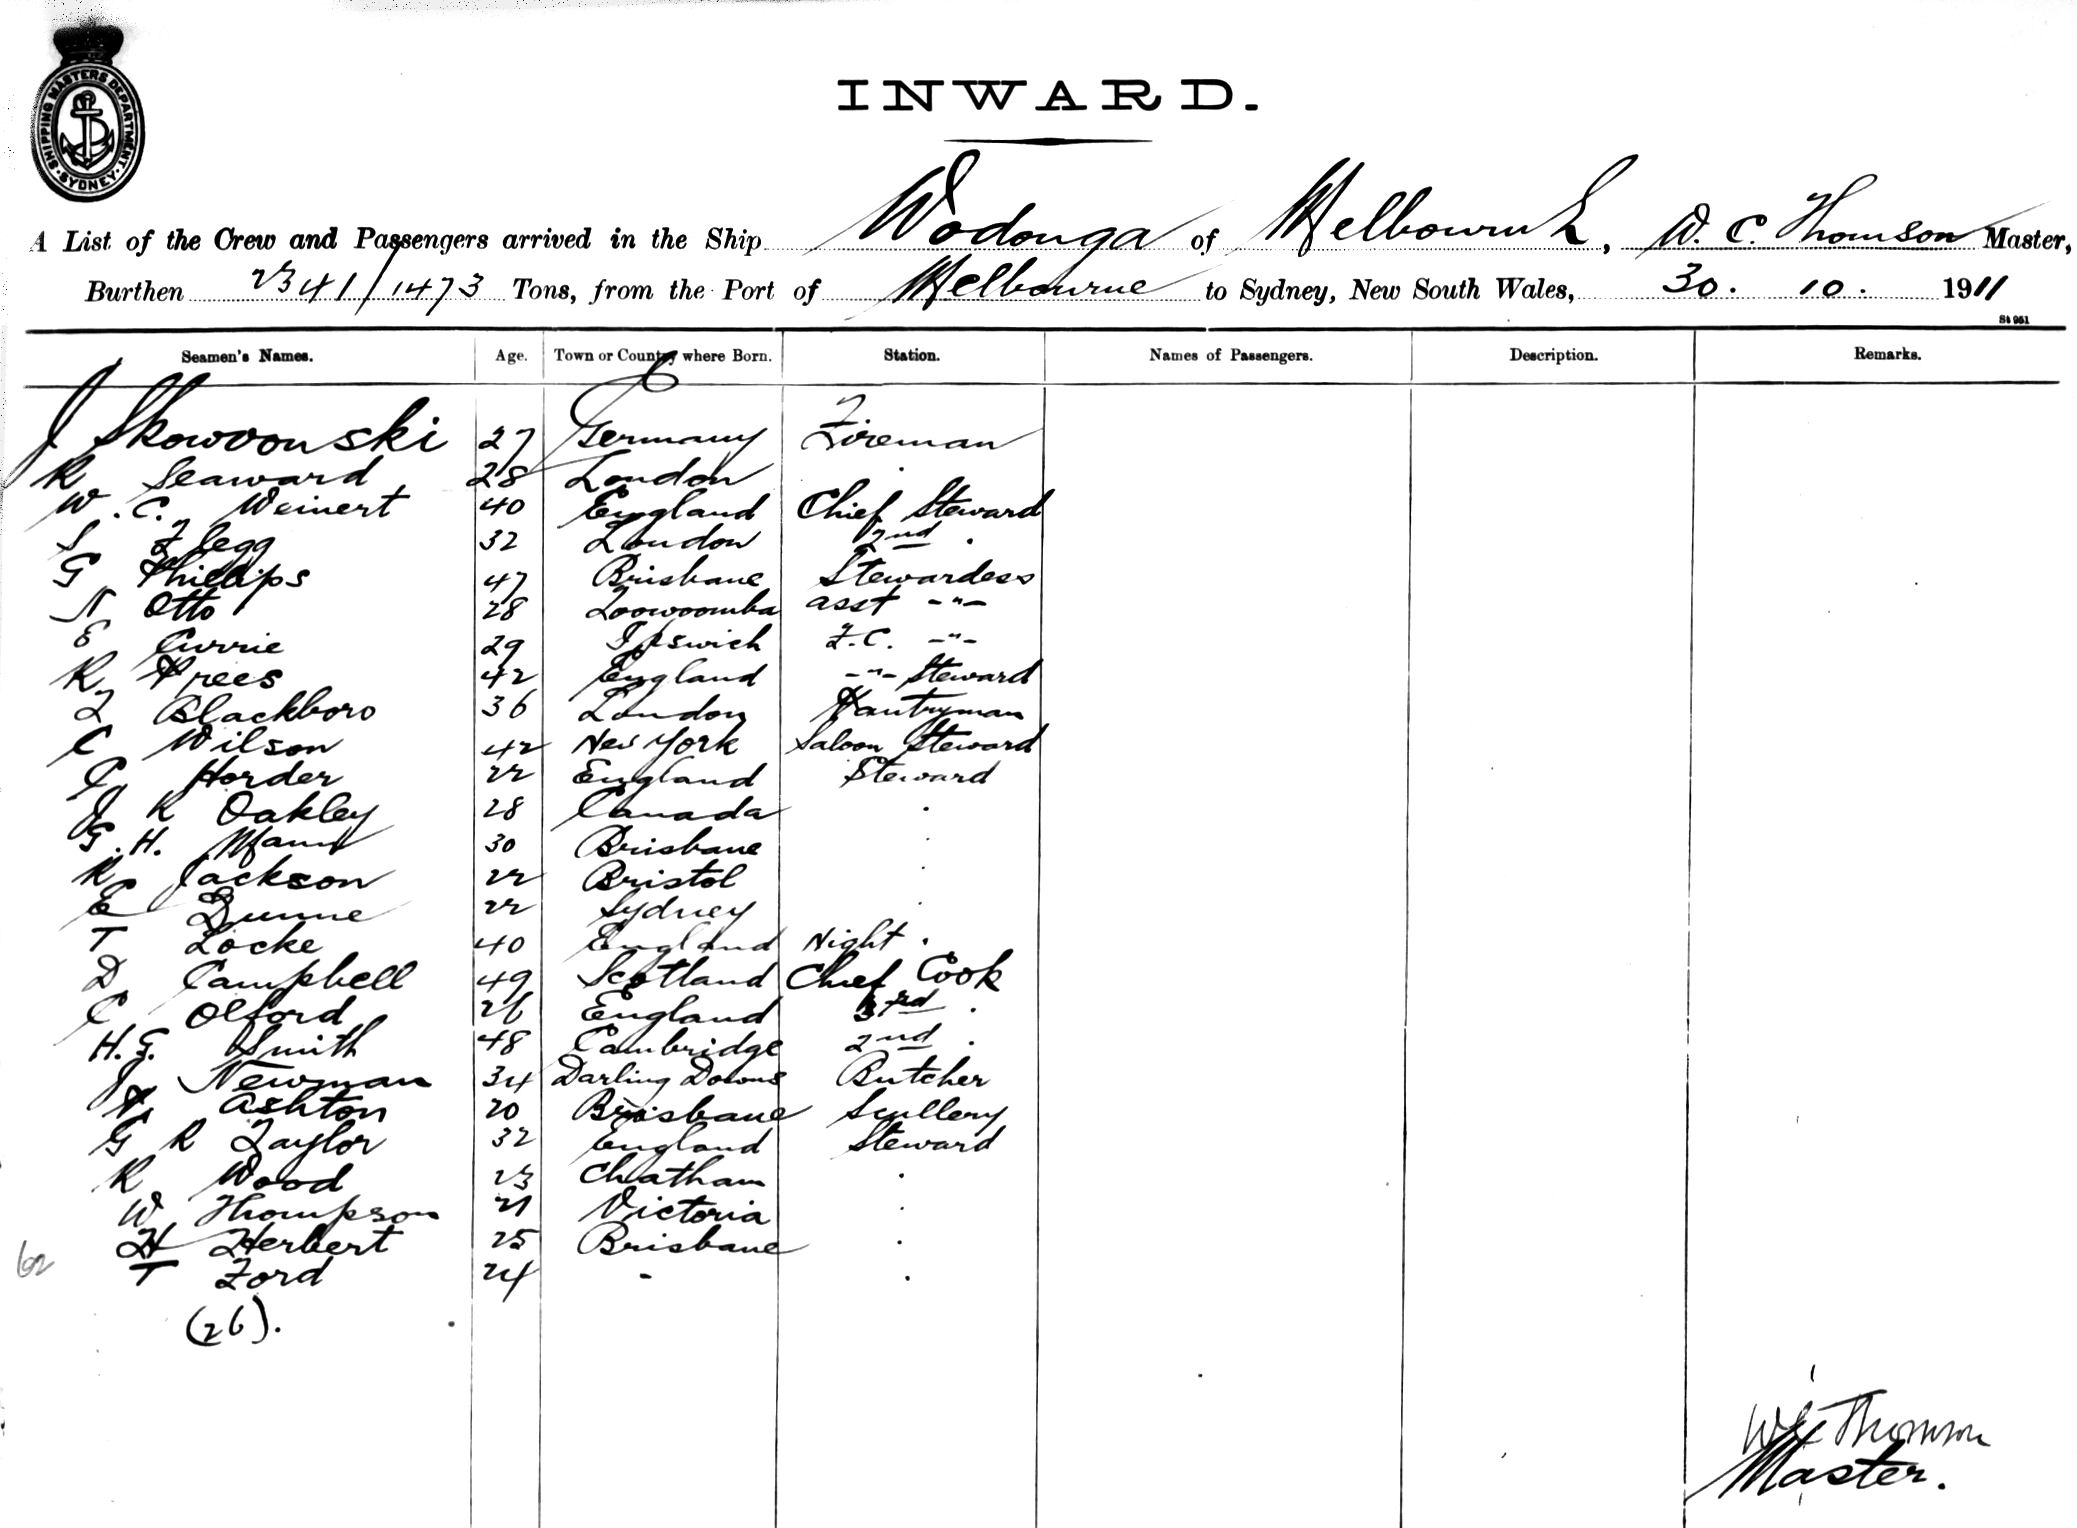 SHIPPING MASTERS DEPARTMENT
SYDNEY
INWARD.
A List of the Crew and Passengers arrived in the Ship Wodonga of Melbourne, W. C. Thomson Master,
Burthen 2341/1473 Tons, from the Port of Melbourne to Sydney, New South Wales, 30. 10. 1911
St 951
Seamen's Names. Age. Town or Country where Born. Station. Names of Passengers. Description. Remarks.
J Skowronski 27 Germany Fireman
R Seaward 28 London
W. C. Weinert 40 England Chief Steward
S Flegg 32 London 2nd
G Phillips 47 Brisbane Stewardess
N Otto 28 Toowoomba asst -"-
E Currie 29 Ipswich F.C. -"-
R Prees 42 England -"- Steward
F Blackboro 36 London Pantryman
C Wilson 42 New York Saloon Steward
C Horder 22 England Steward
J R Oakley 28 Canada
G. H. Mann 30 Brisbane
R Jackson 22 Bristol
E Dunne 22 Sydney
T Locke 40 England Night
D Campbell 49 Scotland Chief Cook
C Olford 26 England 3rd
H. G. Smith 48 Cambridge 2nd
J Newman 34 Darling Downs Butcher
A Ashton 20 Brisbane Scullery
G R Taylor 32 England Steward
R Wood 23 Chatham
W Thompson 21 Victoria
H Herbert 25 Brisbane
62
T Ford 24 -
(26).
W C Thomson
Master.